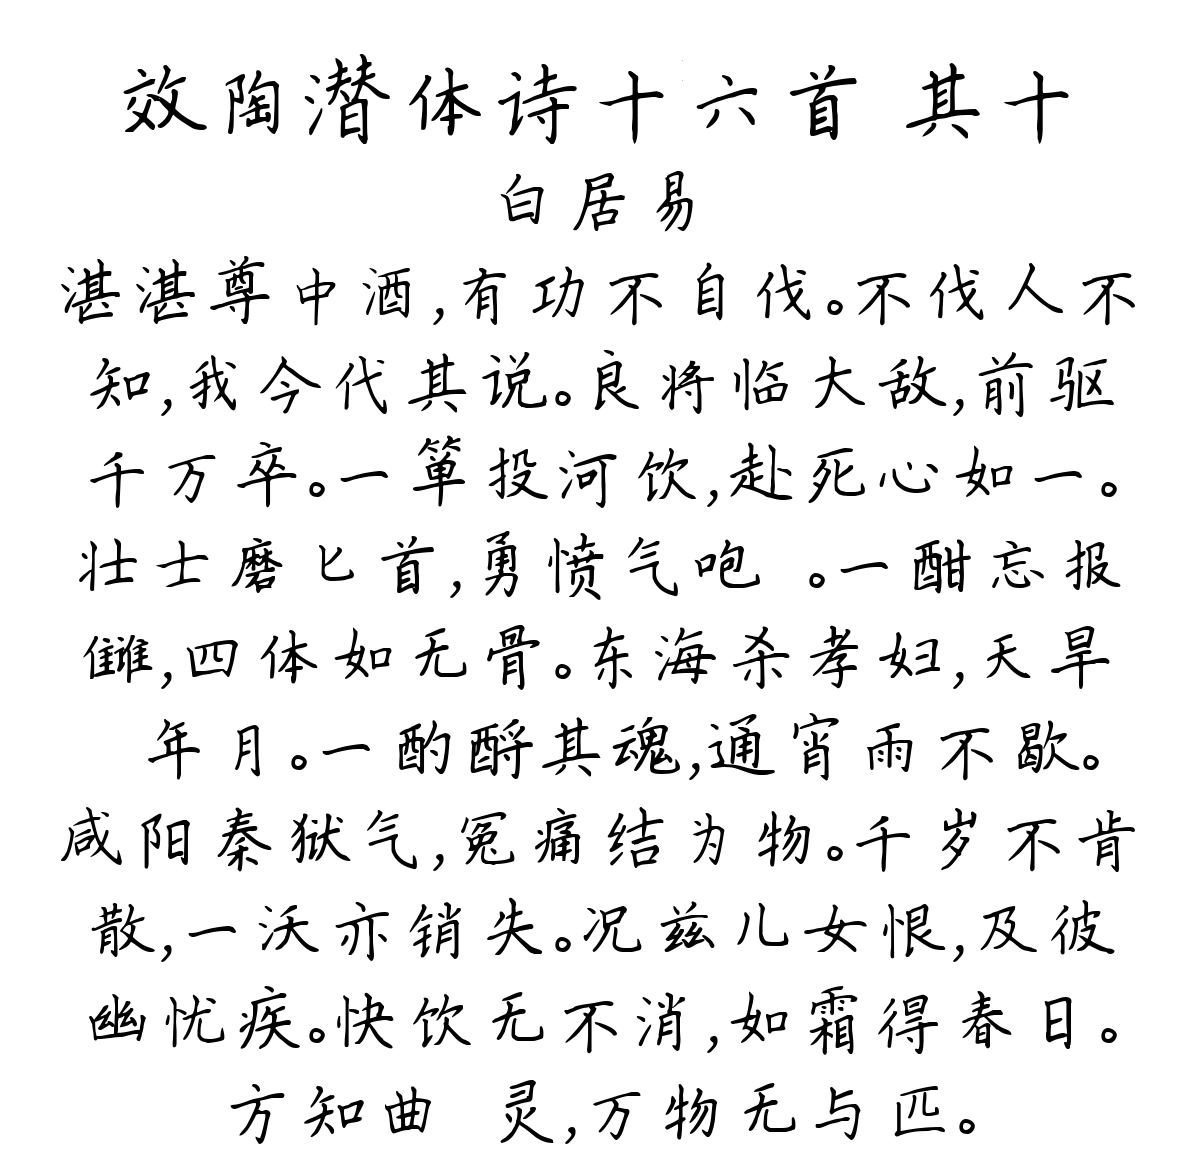 效陶潜体诗十六首 其十
白居易
湛湛尊中酒,有功不自伐。不伐人不
知,我今代其说。良将临大敌,前驱
千万卒。一箪投河饮,赴死心如一。
壮士磨匕首,勇愤气咆 。一酣忘报
雠,四体如无骨。东海杀孝妇,天旱
年月。一酌酹其魂,通宵雨不歇。
咸阳秦狱气,冤痛结为物。千岁不肯
散,一沃亦销失。况兹儿女恨,及彼
幽忧疾。快饮无不消,如霜得春日。
方知曲 灵,万物无与匹。